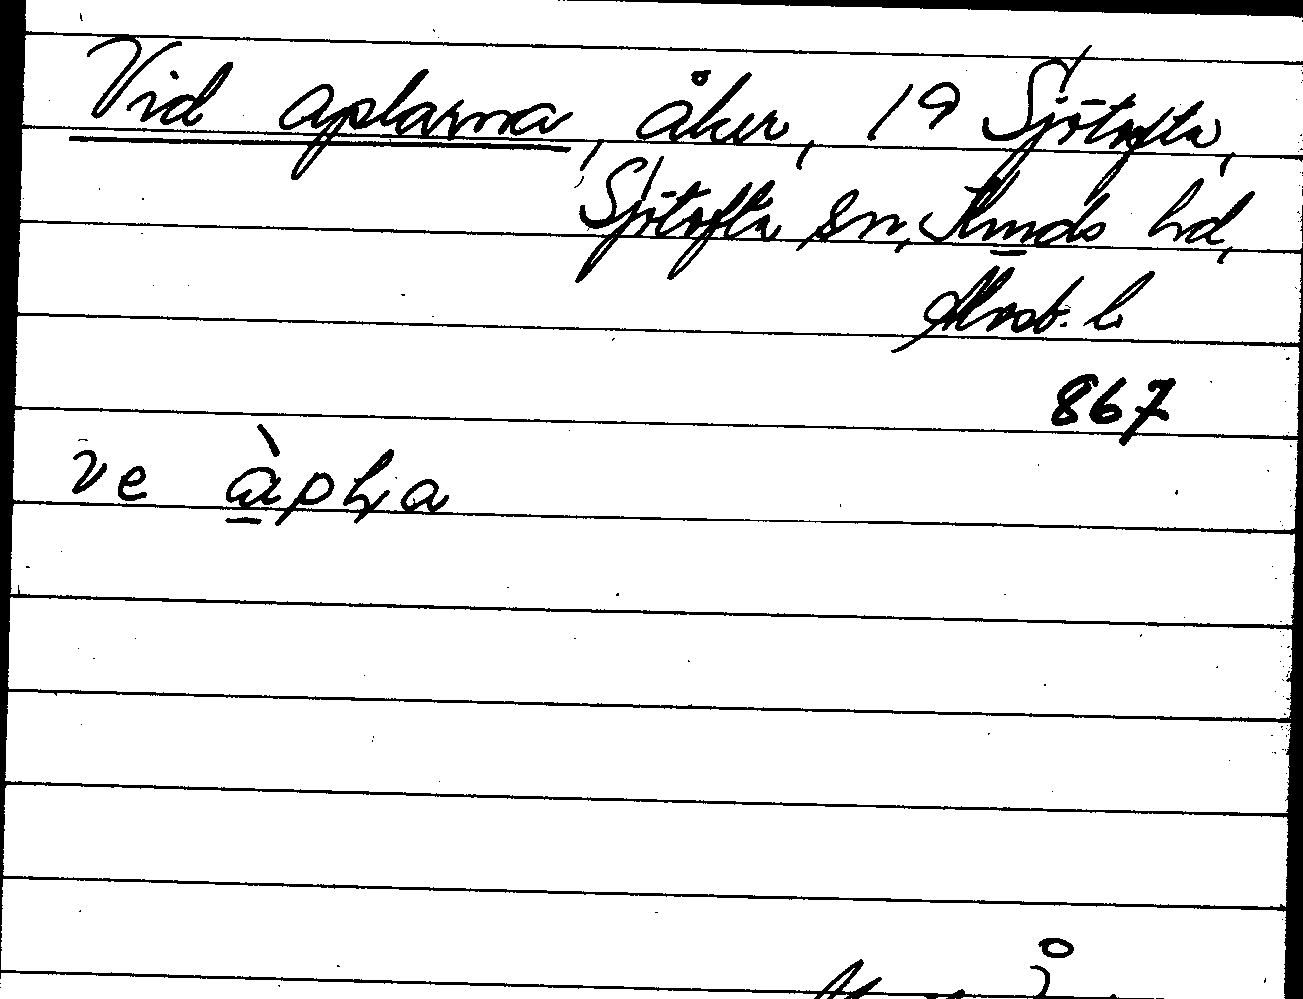 Vid aplarna, åker, 19 Sjötofta,
Sjötofta sn, Kinds hd,
Älvsb. l.
867
ve àpl̥a